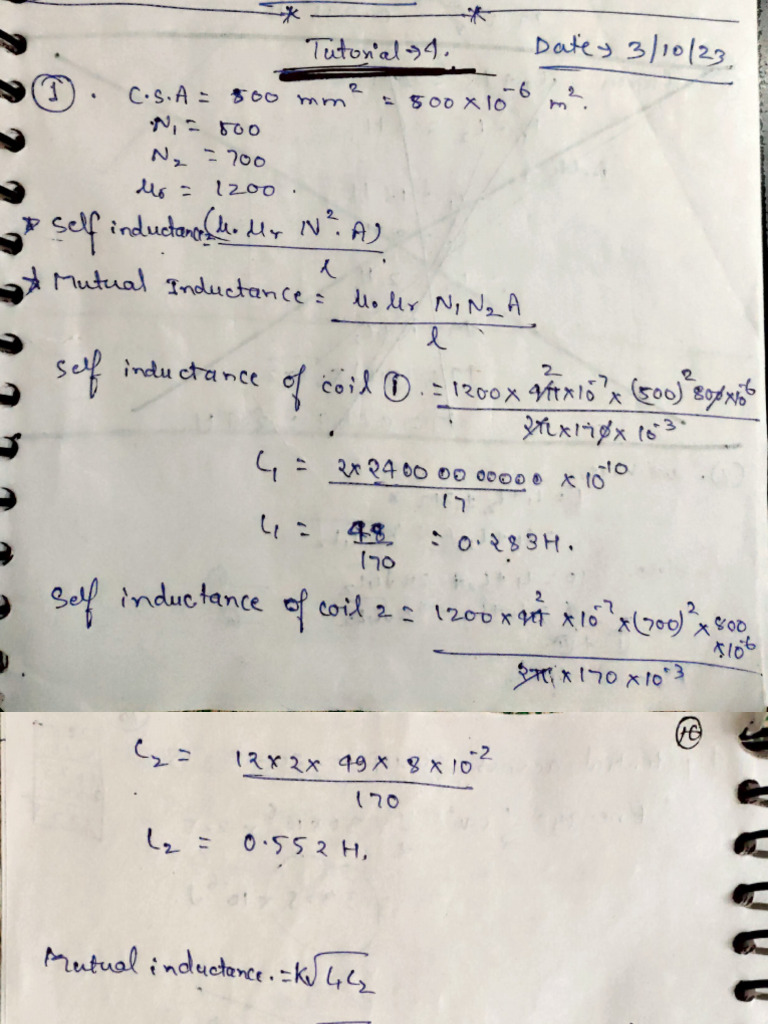 Tutorial → 4. Date → 3/10/23.
① . C.S.A = 800 mm² = 800 × 10⁻⁶ m².
N₁ = 500
N₂ = 700
μr = 1200 .
* Self inductance = (μ₀ μr N² . A) / l
* Mutual Inductance = μ₀ μr N₁ N₂ A / l
Self inductance of coil ① . = 1200 × 4π × 10⁻⁷ × (500)² 800 × 10⁻⁶ / 2π × 170 × 10⁻³
L₁ = 2 × 2400 00 00000 × 10⁻¹⁰ / 17
L₁ = 48 / 170 = 0.283H.
Self inductance of coil 2 = 1200 × 4π × 10⁻⁷ × (700)² × 800 × 10⁻⁶ / 2π × 170 × 10⁻³
L₂ = 12 × 2 × 49 × 8 × 10⁻² / 170
L₂ = 0.552 H.
Mutual inductance. = K√L₁L₂